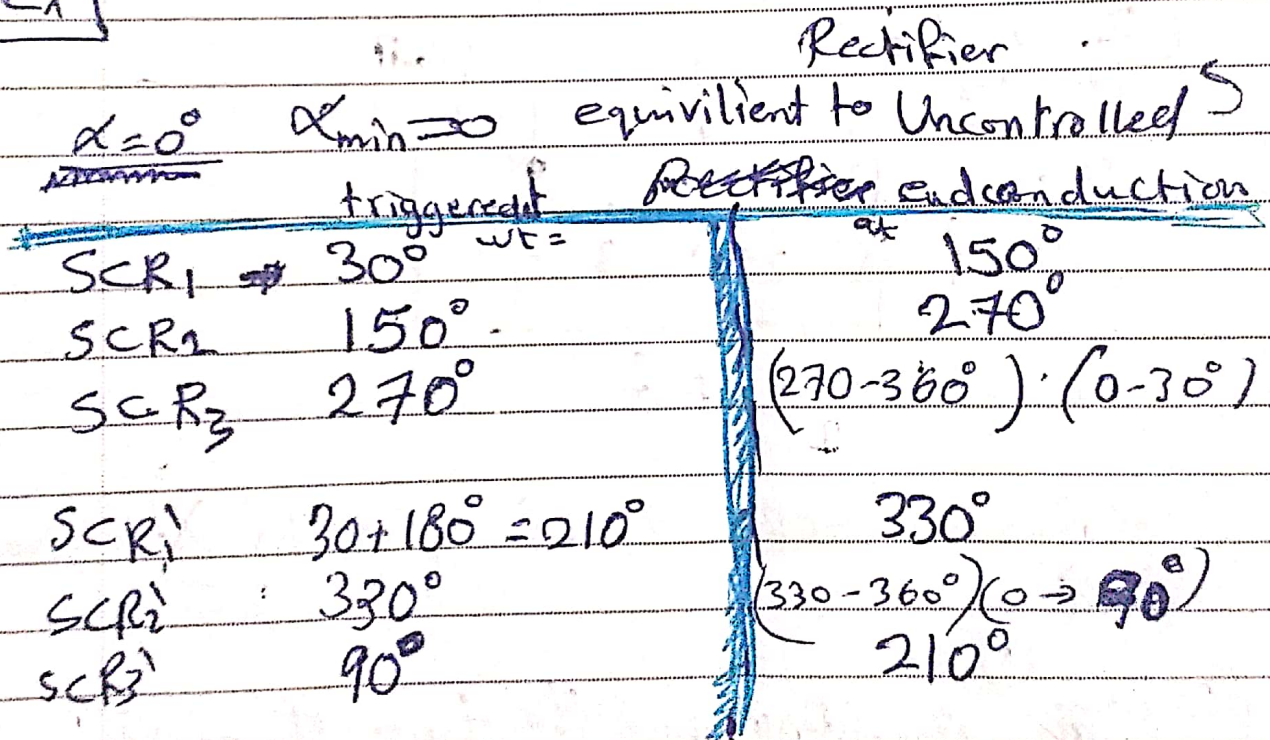 Rectifier
α=0° αmin=0 equivilient to Uncontrolled
triggered at wt= end conduction at
SCR1 → 30° 150°
SCR2 150° 270°
SCR3 270° (270-360°).(0-30°)
SCR1' 30+180°=210° 330°
SCR2' : 330° (330-360°)(0→90°)
SCR3' 90° 210°